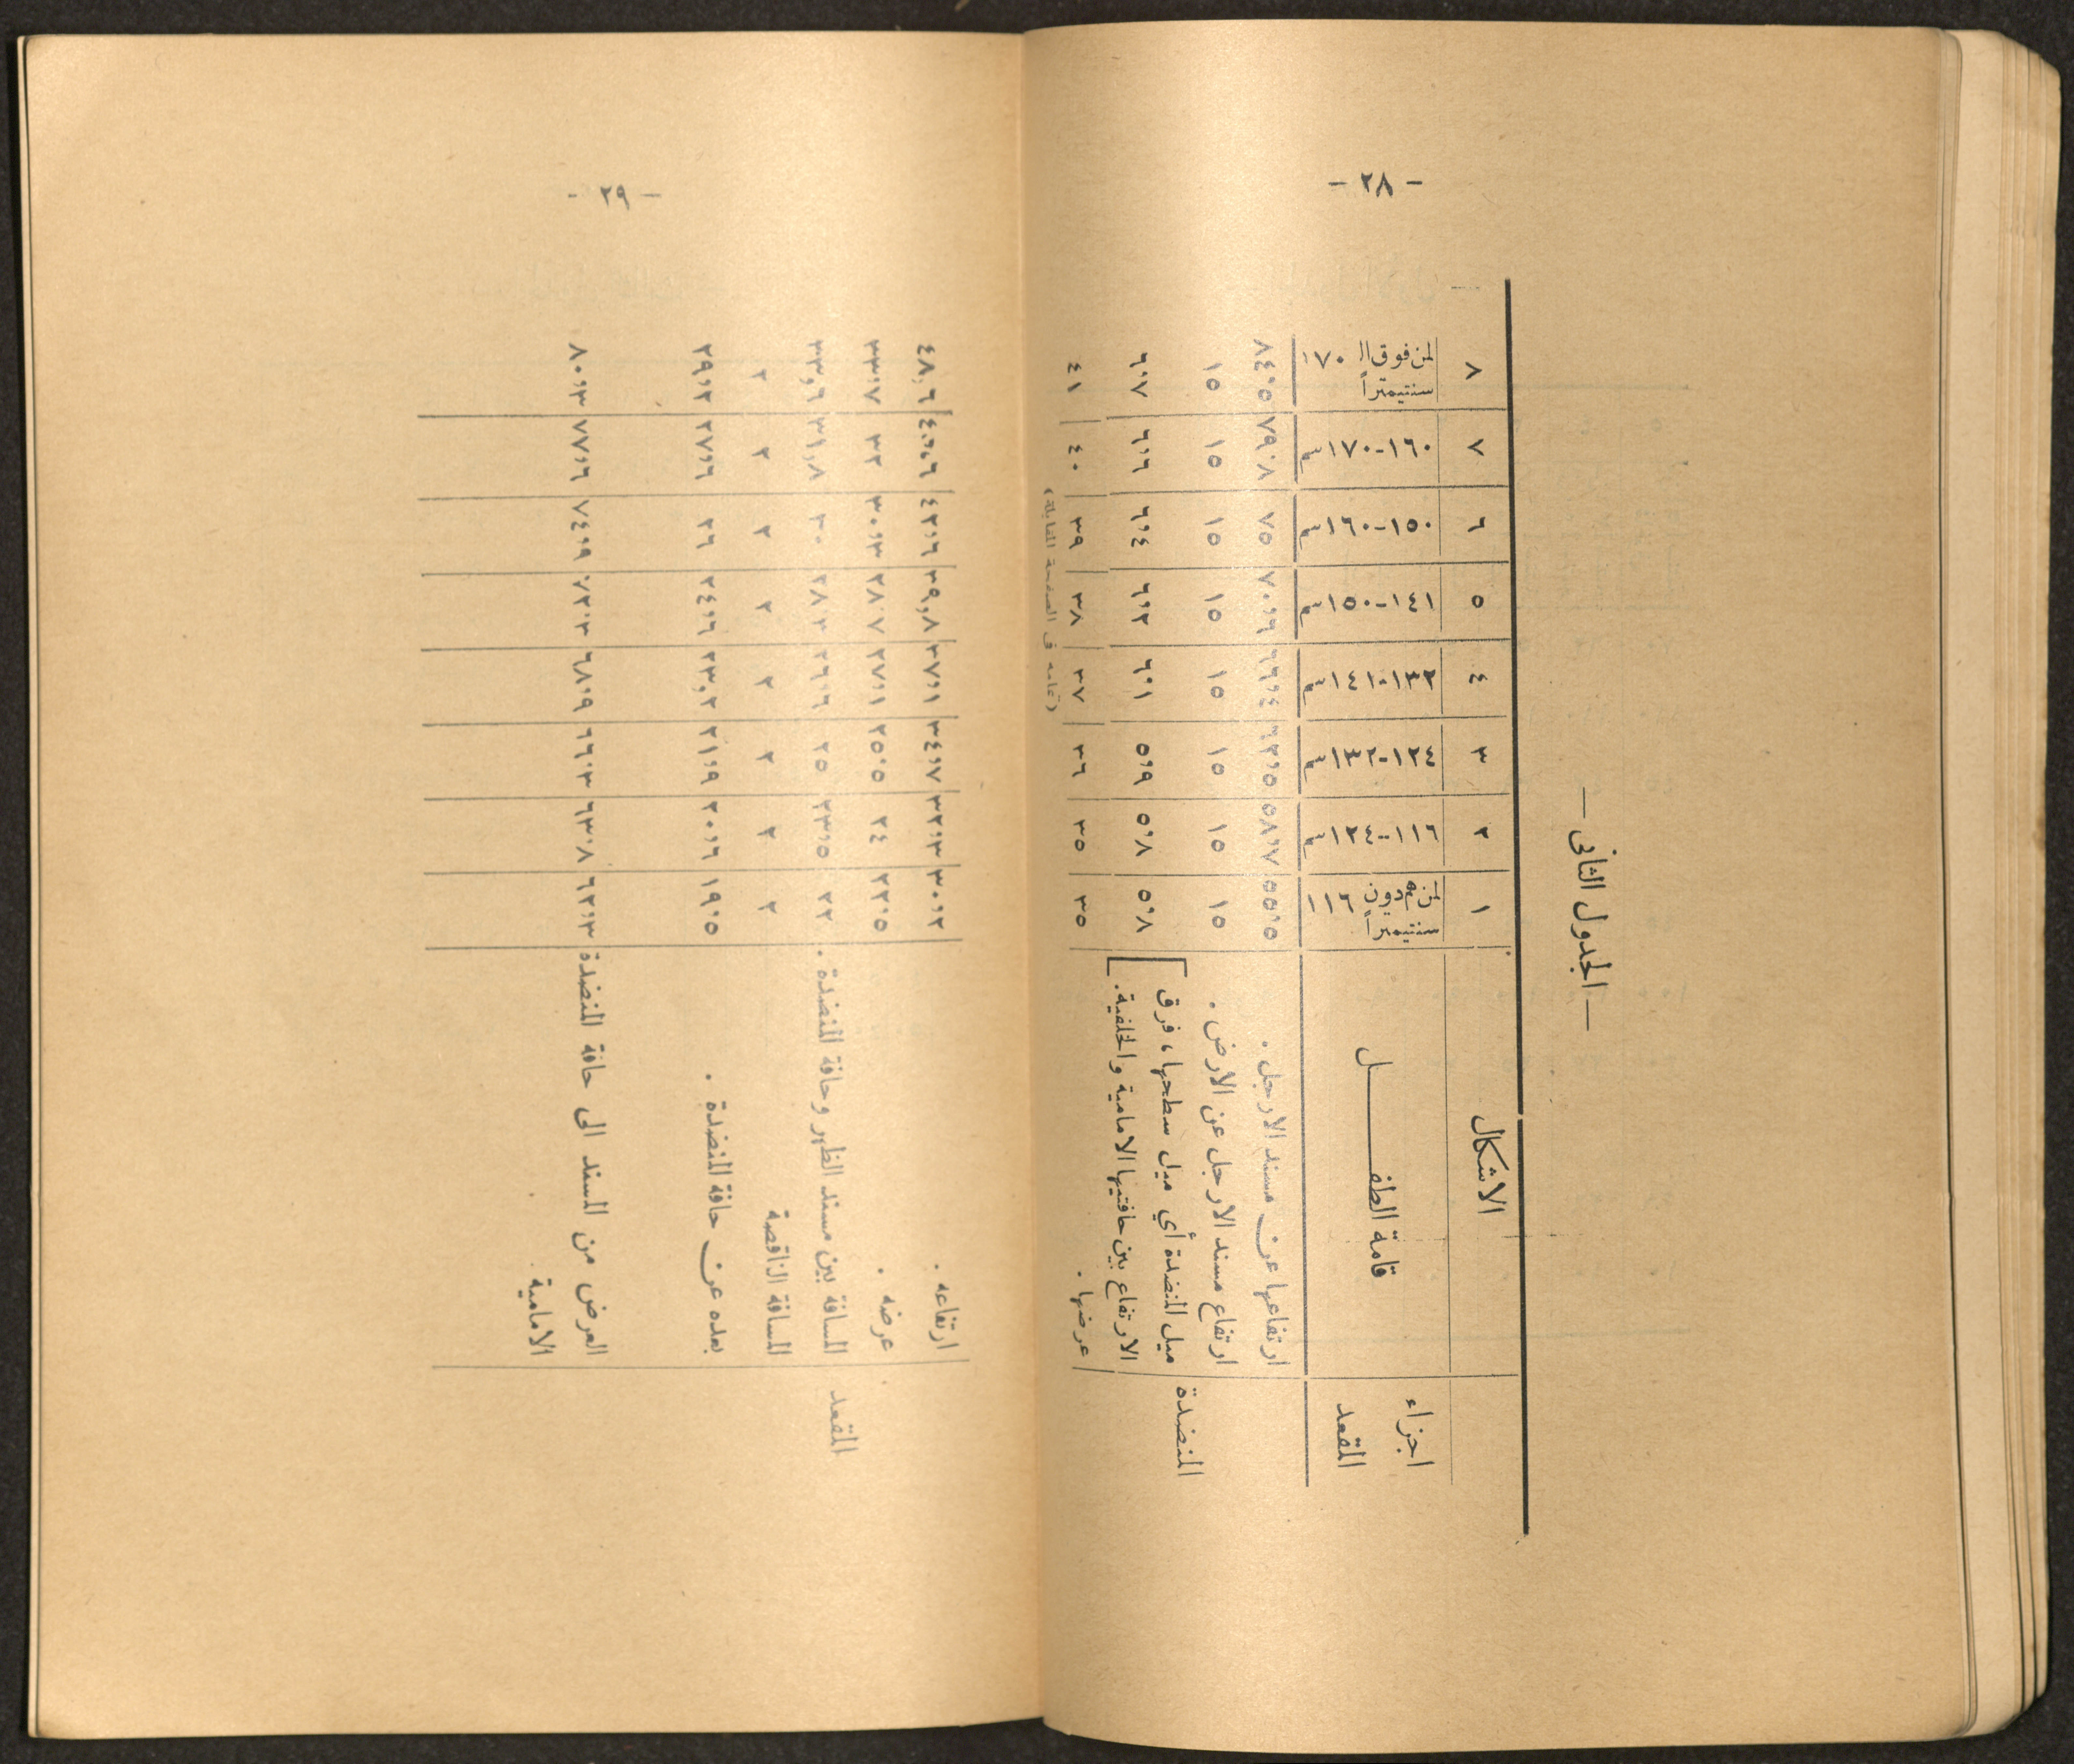 - ٢٨ -
— الجدول الثاني —
الاشكال ١ ٢ ٣ ٤ ٥ ٦ ٧ ٨
اجزاء المقعد
قامة الطفـــل
لمن هم دون ١١٦ سنتيمتراً
١١٦-١٢٤ سم
١٢٤-١٣٢ سم
١٣٢-١٤١ سم
١٤١-١٥٠ سم
١٥٠-١٦٠ سم
١٦٠-١٧٠ سم
لمن فوق الـ ١٧٠ سنتيمتراً
المنضدة
ارتفاعها عن مسند الارجل . ٥٥،٥ ٥٨،٧ ٦٢،٥ ٦٦،٤ ٧٠،٦ ٧٥ ٧٩،٨ ٨٤،٥
ارتفاع مسند الارجل عن الارض . ١٥ ١٥ ١٥ ١٥ ١٥ ١٥ ١٥ ١٥
ميل المنضدة أي ميل سطحها ، فرق
الارتفاع بين حافتيها الامامية والخلفية . ٥،٨ ٥،٨ ٥،٩ ٦،١ ٦،٢ ٦،٤ ٦،٦ ٦،٧
عرضها . ٣٥ ٣٥ ٣٦ ٣٧ ٣٨ ٣٩ ٤٠ ٤١
( تمامه في الصفحة المقابلة )
- ٢٩ -
المقعد
ارتفاعه . ٣٠،٢ ٣٢،٣ ٣٤،٧ ٣٧،١ ٣٩،٨ ٤٢،٦ ٤٨،٦
عرضه . ٢٢،٥ ٢٤ ٢٥،٥ ٢٧،١ ٢٨،٧ ٣٠،٣ ٣٢ ٣٣،٧
المسافة بين مسند الظهر وحافة المنضدة . ٢٢ ٢٣،٥ ٢٥ ٢٦،٦ ٢٨،٣ ٣٠ ٣١،٨ ٣٣،٦
المسافة الناقصة ٢ ٢ ٢ ٢ ٢ ٢ ٢ ٢
بعده عن حافة المنضدة . ١٩،٥ ٢٠،٦ ٢١،٩ ٢٣،٢ ٢٤،٦ ٢٦ ٢٧،٦ ٢٩،٢
العرض من المسند الى حافة المنضدة ٦٢،٣ ٦٣،٨ ٦٦،٣ ٦٨،٩ ٧٢،٣ ٧٤،٩ ٧٧،٦ ٨٠،٣
الامامية .